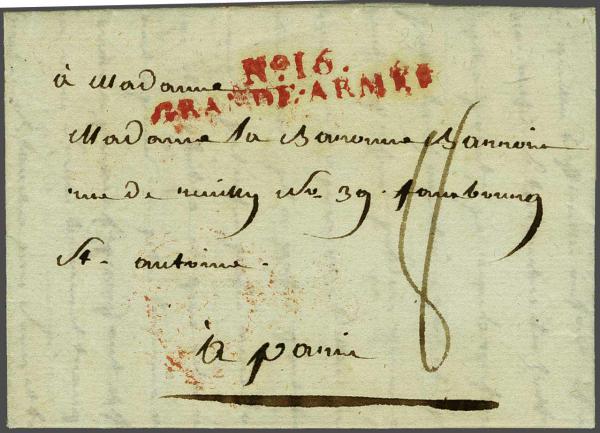 No. 16.
GRANDE ARMÉE
à Madame
Madame la Baronne Barrois
rue de reuilly No 39. fauxbourg
St. antoine.
8
à paris